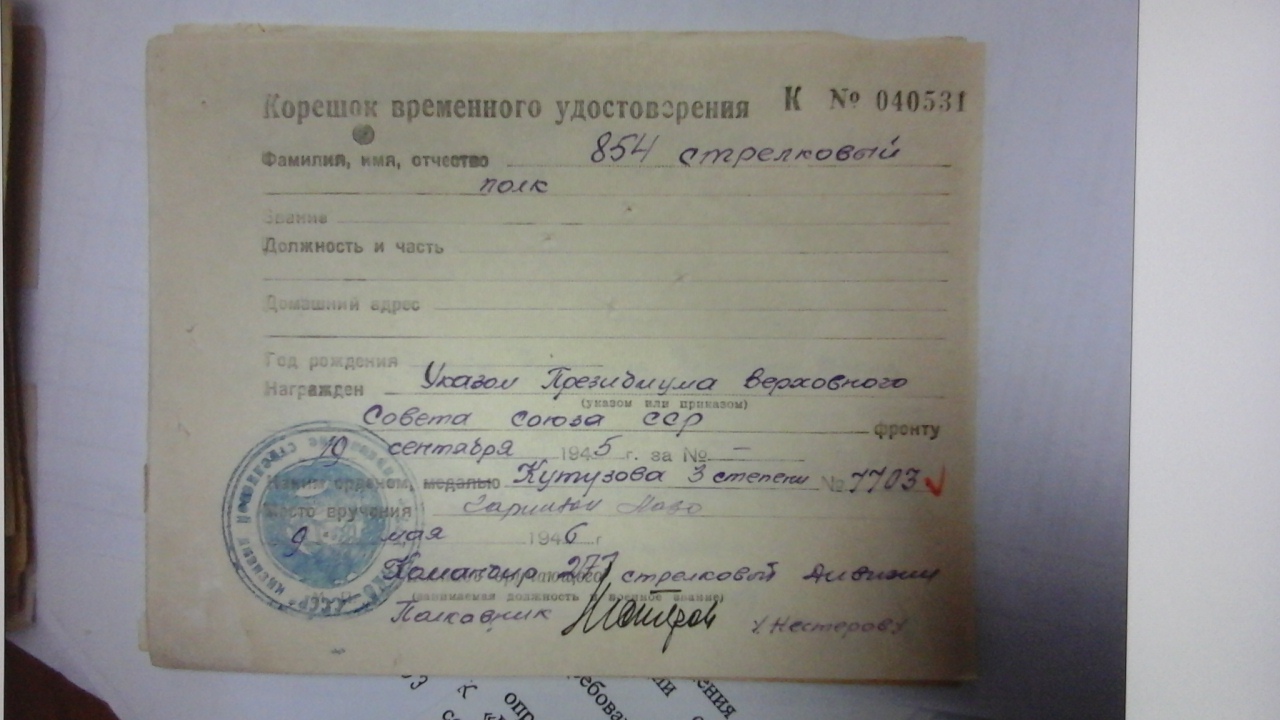 Корешок временного удостоверения К № 040531
Фамилия, имя, отчество 854 стрелковый
полк
Звание
Должность и часть
Домашний адрес
Год рождения
Награжден Указом Президиума Верховного
(указом или приказом)
Совета союза ССР фронту
19 сентября 1945 г. за № –
Каким орденом, медалью Кутузова 3 степени № 7703
Место вручения
9 мая 1946 г
Командир 277 стрелковый дивизии
(занимаемая должность и военное звание)
Полковник /Нестеров/